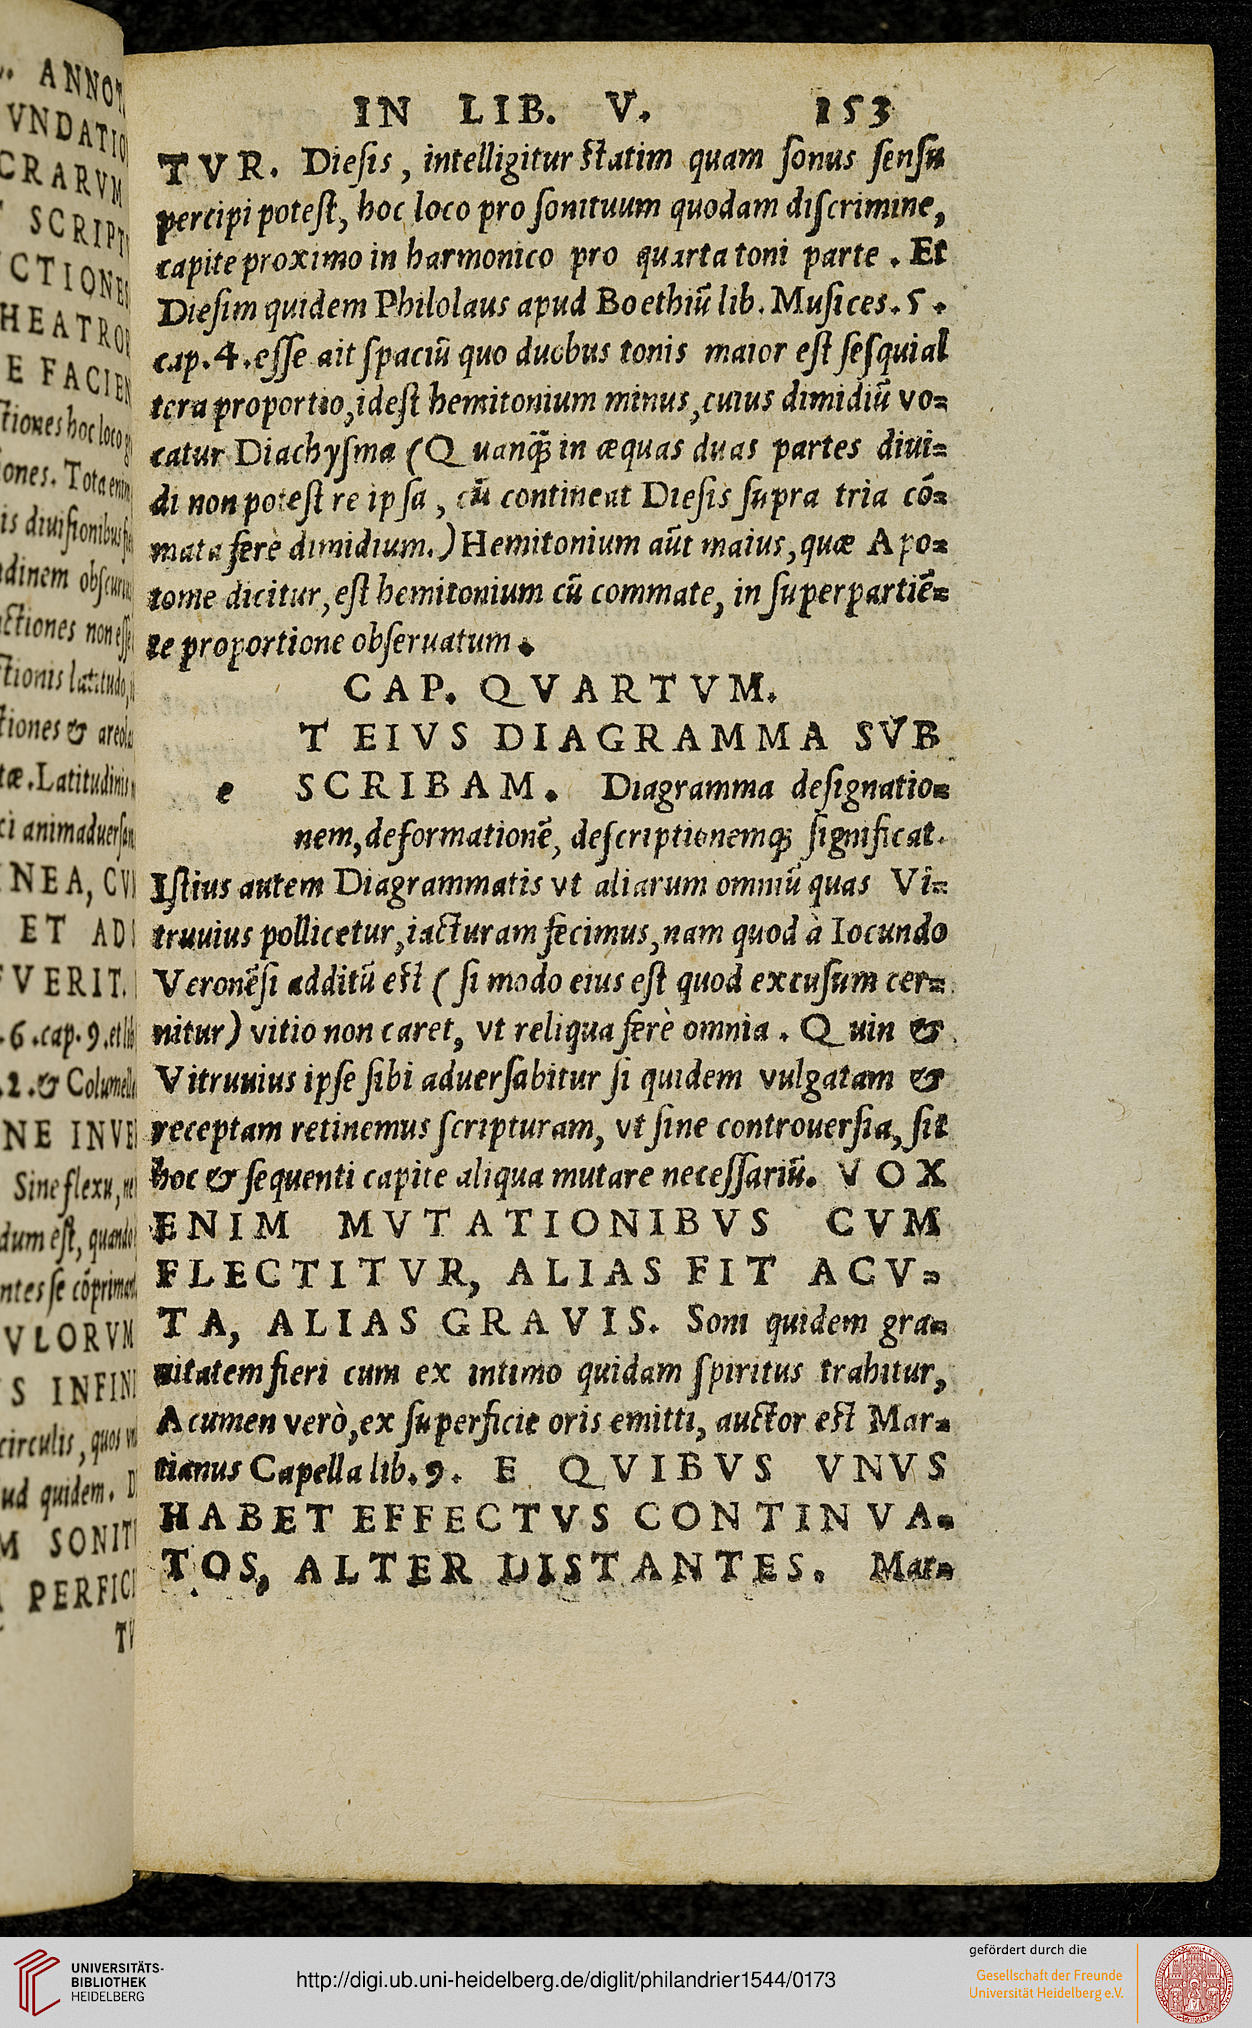 IN LIB. V. 153
TVR. Diesis, intelligitur statim quam sonus sensu
percipi potest, hoc loco pro sonituum quodam discrimine,
capite proximo in harmonico pro quarta toni parte. Et
Diesim quidem Philolaus apud Boethiũ lib. Musices. 5.
cap. 4. esse ait spaciũ quo duobus tonis maior est sesquial
tera proportio, idest hemitonium minus, cuius dimidiũ vo=
catur Diachysma (Quanq̃ in æquas duas partes diui=
di non potest re ipsa, cũ contineat Diesis supra tria cõ=
mata ferè dimidium.) Hemitonium aũt maius, quæ Apo=
tome dicitur, est hemitonium cũ commate, in superpartiẽ=
te proportione obseruatum.
CAP. QVARTVM.
T EIVS DIAGRAMMA SVB
e SCRIBAM. Diagramma designatio=
nem, deformationẽ, descriptionemq; significat.
Istius autem Diagrammatis vt aliarum omniũ quas Vi=
truuius pollicetur, iacturam fecimus, nam quod à Iocundo
Veronẽsi additũ est (si modo eius est quod excusum cer=
nitur) vitio non caret, vt reliqua ferè omnia. Quin &
Vitruuius ipse sibi aduersabitur si quidem vulgatam &
receptam retinemus scripturam, vt sine controuersia, sit
hoc & sequenti capite aliqua mutare necessariũ. VOX
ENIM MVTATIONIBVS CVM
FLECTITVR, ALIAS FIT ACV=
TA, ALIAS GRAVIS. Soni quidem gra=
uitatem fieri cum ex intimo quidam spiritus trahitur,
Acumen verò, ex superficie oris emitti, auctor est Mar=
tianus Capella lib. 9. E QVIBVS VNVS
HABET EFFECTVS CONTINVA=
TOS, ALTER DISTANTES. Mar=
UNIVERSITÄTS-
BIBLIOTHEK
HEIDELBERG
http://digi.ub.uni-heidelberg.de/diglit/philandrier1544/0173
gefördert durch die
Gesellschaft der Freunde
Universität Heidelberg e.V.